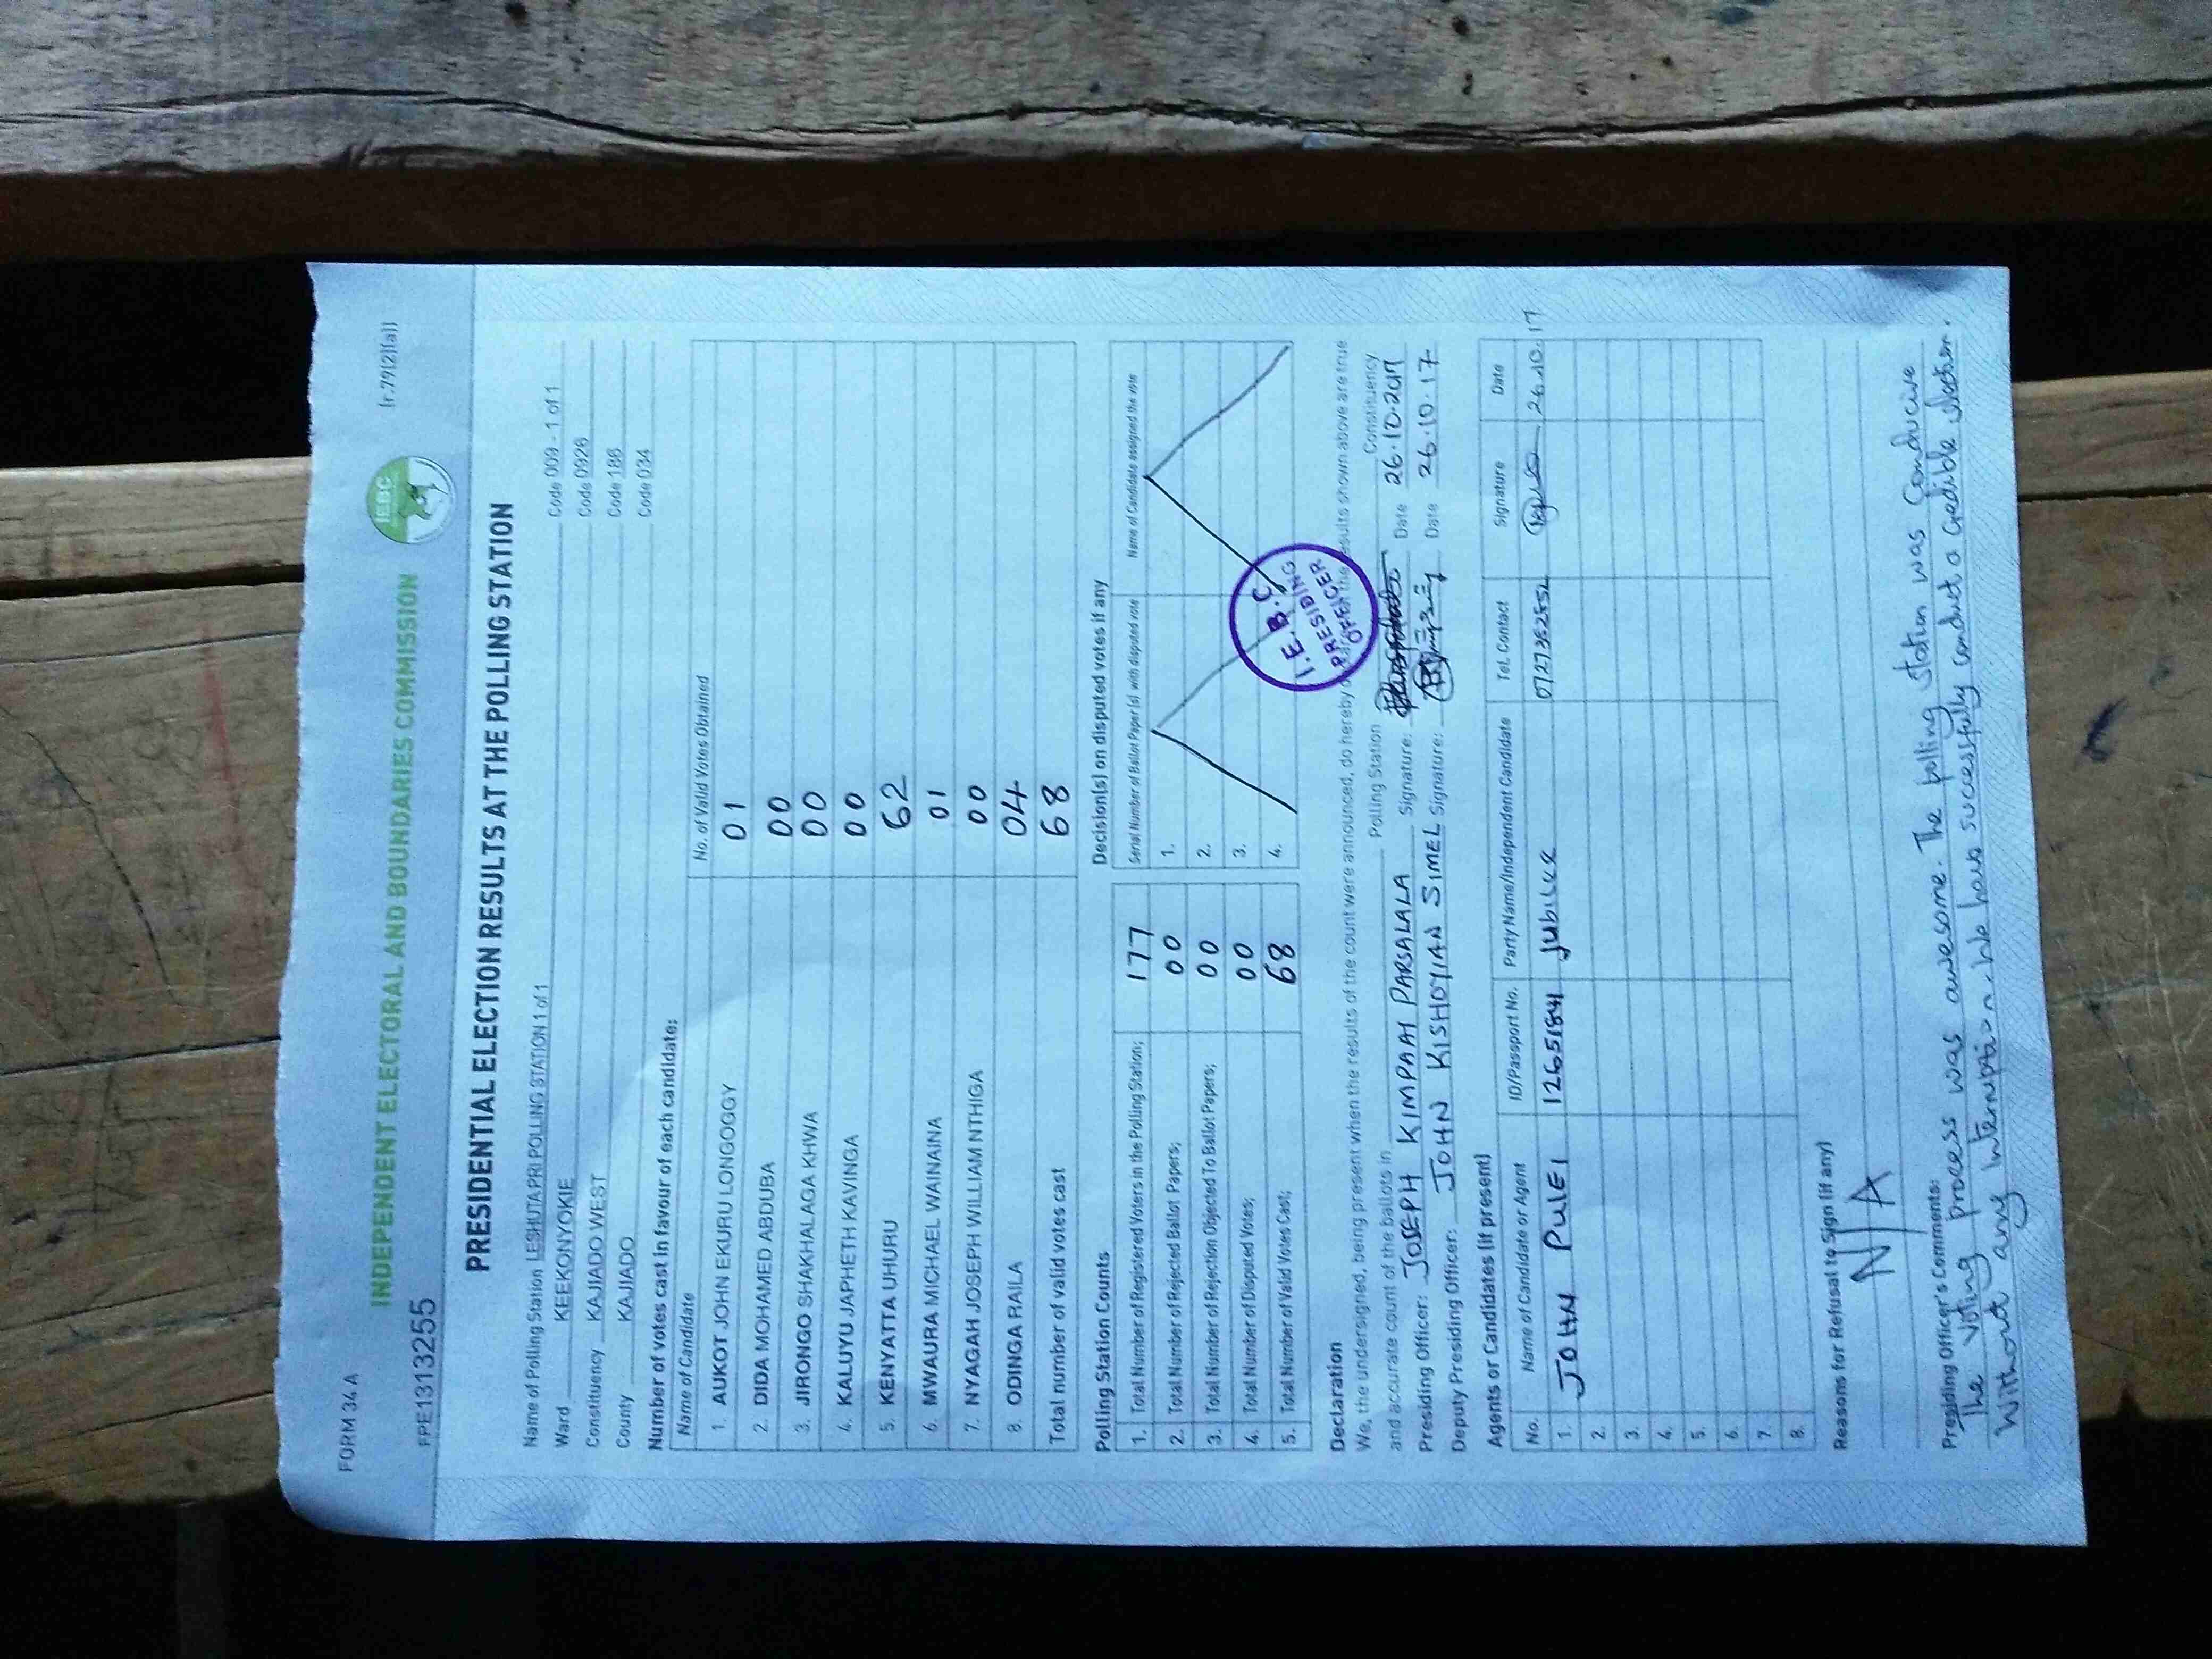 FORM 34 A
[r.79(2)(a)]
IEBC
INDEPENDENT ELECTORAL AND BOUNDARIES COMMISSION
FPE1313255
PRESIDENTIAL ELECTION RESULTS AT THE POLLING STATION
Name of Polling Station LESHUTA PRI POLLING STATION 1 of 1 Code 009 - 1 of 1
Ward KEEKONYOKIE Code 0926
Constituency KAJIADO WEST Code 186
County KAJIADO Code 034
Number of votes cast in favour of each candidate:
Name of Candidate No. of Valid Votes Obtained
1. AUKOT JOHN EKURU LONGOGGY 01
2. DIDA MOHAMED ABDUBA 00
3. JIRONGO SHAKHALAGA KHWA 00
4. KALUYU JAPHETH KAVINGA 00
5. KENYATTA UHURU 62
6. MWAURA MICHAEL WAINAINA 01
7. NYAGAH JOSEPH WILLIAM NTHIGA 00
8. ODINGA RAILA 04
Total number of valid votes cast 68
Polling Station Counts
1. Total Number of Registered Voters in the Polling Station; 177
2. Total Number of Rejected Ballot Papers; 00
3. Total Number of Rejection Objected To Ballot Papers; 00
4. Total Number of Disputed Votes; 00
5. Total Number of Valid Votes Cast; 68
Decision(s) on disputed votes if any
Serial Number of Ballot Paper (s) with disputed vote Name of Candidate assigned the vote
1.
2.
3.
4.
I.E.B.C.
PRESIDING
OFFICER
Declaration
We, the undersigned, being present when the results of the count were announced, do hereby the results shown above are true
and accurate count of the ballots in Polling Station Constituency
Presiding Officer: JOSEPH KIMPAAY PARSALALA Signature: Date 26.10.2017
Deputy Presiding Officer: JOHN KISHOYIAN SIMEL Signature: Date 26.10.17
Agents or Candidates (if present)
No. Name of Candidate or Agent ID/Passport No. Party Name/Independent Candidate Tel. Contact Signature Date
1. JOHN PULEI 12651841 JUBILEE 0727382552 26.10.17
2.
3.
4.
5.
6.
7.
8.
Reasons for Refusal to Sign (if any)
N/A
Presiding Officer's Comments:
The voting process was awesome. The polling station was Conducive
Without any Interruption. We have sucessfully conduct a credible election.